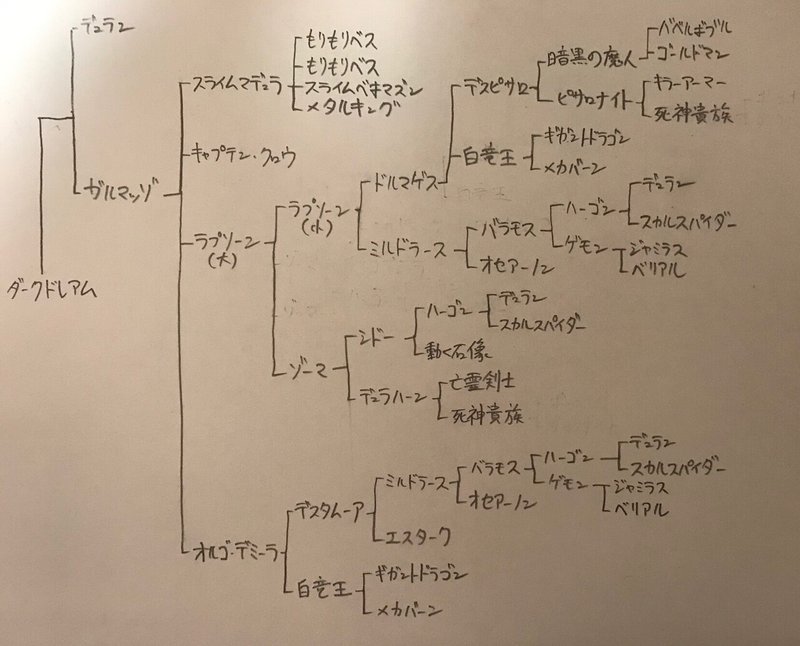 デュラン
ガルマッゾ
ダークドレアム
スライムマデュラ
もりもりベス
もりもりベス
スライムベホマズン
メタルキング
キャプテン・クロウ
ラプソーン
(大)
ラプソーン
(小)
ドルマゲス
デスピサロ
暗黒の魔人
バベルボブル
ゴールドマン
ピサロナイト
キラーアーマー
死神貴族
白竜王
ギガントドラゴン
メカバーン
ミルドラース
バラモス
ハーゴン
デュラン
スカルスパイダー
ゲモン
ジャミラス
ベリアル
オセアーノン
ゾーマ
シドー
ハーゴン
デュラン
スカルスパイダー
動く石像
デュラハーン
亡霊剣士
死神貴族
オルゴ・デミーラ
デスタムーア
ミルドラース
バラモス
ハーゴン
デュラン
スカルスパイダー
ゲモン
ジャミラス
ベリアル
オセアーノン
エスターク
白竜王
ギガントドラゴン
メカバーン